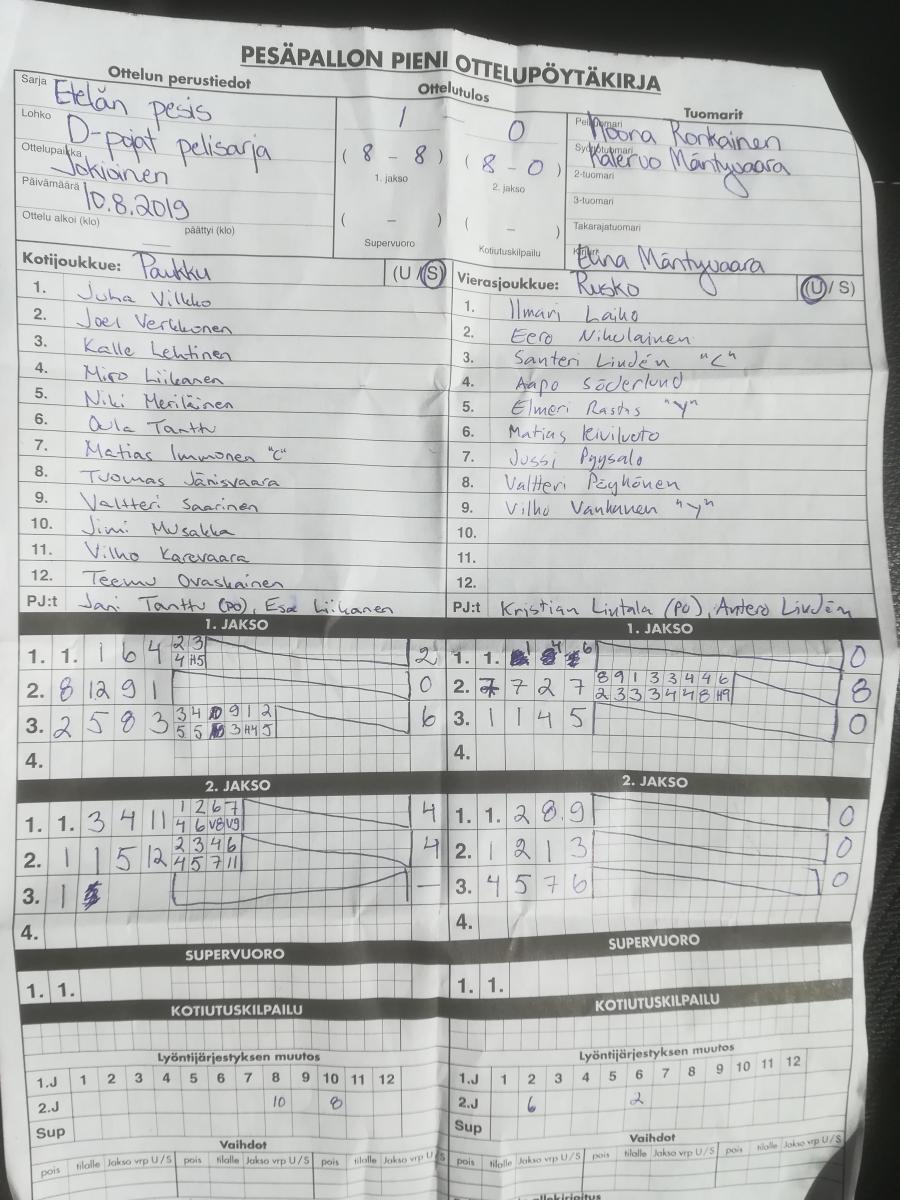 PESÄPALLON PIENI OTTELUPÖYTÄKIRJA
Ottelun perustiedot
Ottelutulos
Tuomarit
Sarja Etelän pesis
Lohko D-pojat pelisarja
Ottelupaikka Jokioinen
Päivämäärä 10.8.2019
Ottelu alkoi (klo) päättyi (klo)
1 – 0
( 8 – 8 ) ( 8 – 0 )
1. jakso 2. jakso
( – ) ( – )
Supervuoro Kotiutuskilpailu
Pelituomari Noora Ronkainen
Syöttötuomari Kalervo Mäntyvaara
2-tuomari
3-tuomari
Takarajatuomari
Kirjuri Elina Mäntyvaara
Kotijoukkue: Paukku (U / S)
1. Juha Vilkko
2. Joel Verkkonen
3. Kalle Lehtinen
4. Miro Liikanen
5. Niki Meriläinen
6. Oula Tanttu
7. Matias Immonen "C"
8. Tuomas Jänisvaara
9. Valtteri Saarinen
10. Jimi Musakka
11. Vilho Karevaara
12. Teemu Ovaskainen
PJ:t Jani Tanttu (PO), Esa Liikanen
Vierasjoukkue: Rusko (U / S)
1. Ilmari Laiho
2. Eero Nikulainen
3. Santeri Lindén "C"
4. Aapo Söderlund
5. Elmeri Rastas "Y"
6. Matias Kiviluoto
7. Jussi Pyysalo
8. Valtteri Pöyhönen
9. Vilho Vanhanen "Y"
10.
11.
12.
PJ:t Kristian Lintala (PO), Antero Lindén
1. JAKSO
1. 1. 1 6 4 2 3 2
4 H5
2. 8 12 9 1 0
3. 2 5 8 3 3 4 9 1 2 6
5 5 3 H4 5
4.
1. JAKSO
1. 1. 1 4 6 0
2. 7 7 2 7 8 9 1 3 3 4 4 6 8
2 3 3 3 4 4 8 H9
3. 1 1 4 5 0
4.
2. JAKSO
1. 1. 3 4 11 1 2 6 7 4
4 6 V8 V9
2. 1 1 5 12 2 3 4 6 4
4 5 7 11
3. 1 —
4.
2. JAKSO
1. 1. 2 8 9 0
2. 1 2 1 3 0
3. 4 5 7 6 0
4.
SUPERVUORO
1. 1.
SUPERVUORO
1. 1.
KOTIUTUSKILPAILU
KOTIUTUSKILPAILU
Lyöntijärjestyksen muutos
1.J 1 2 3 4 5 6 7 8 9 10 11 12
2.J 10 8
Sup
Lyöntijärjestyksen muutos
1.J 1 2 3 4 5 6 7 8 9 10 11 12
2.J 6 2
Sup
Vaihdot
pois tilalle Jakso vrp U / S pois tilalle Jakso vrp U / S pois tilalle Jakso vrp U / S
Vaihdot
pois tilalle Jakso vrp U / S pois tilalle Jakso vrp U / S pois tilalle Jakso vrp U / S